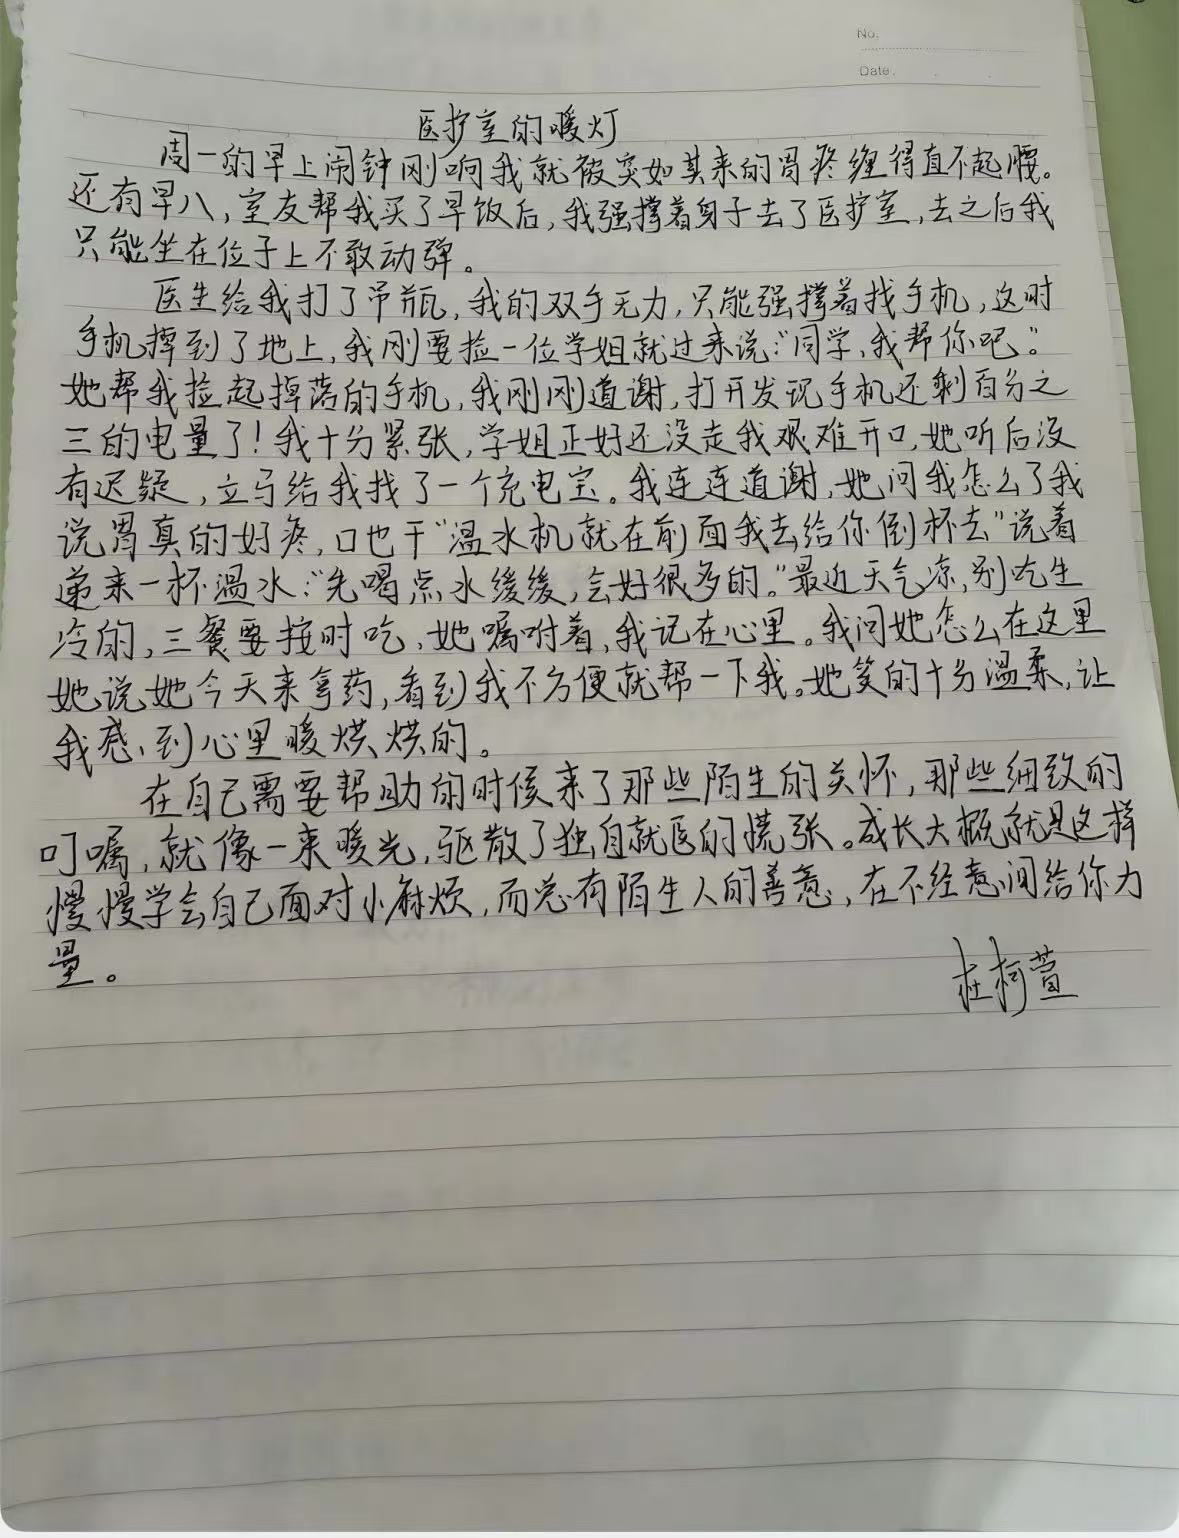 No.
Date.
医护室的暖灯
周一的早上闹钟刚响我就被突如其来的胃疼缠得直不起腰。
还有早八，室友帮我买了早饭后，我强撑着身子去了医护室，去之后我
只能坐在位子上不敢动弹。
医生给我打了吊瓶，我的双手无力，只能强撑着找手机，这时
手机掉到了地上，我刚要捡一位学姐就过来说：“同学，我帮你吧。”
她帮我捡起掉落的手机，我刚刚道谢，打开发现手机还剩百分之
三的电量了！我十分紧张，学姐正好还没走我艰难开口，她听后没
有迟疑，立马给我找了一个充电宝。我连连道谢，她问我怎么了我
说胃真的好疼，口也干“温水机就在前面我去给你倒杯去”说着
递来一杯温水：“先喝点水缓缓，会好很多的。”最近天气凉，别吃生
冷的，三餐要按时吃，她嘱咐着，我记在心里。我问她怎么在这里
她说她今天来拿药，看到我不方便就帮一下我。她笑的十分温柔，让
我感到心里暖烘烘的。
在自己需要帮助的时候来了那些陌生的关怀，那些细致的
叮嘱，就像一束暖光，驱散了独自就医的慌张。成长大概就是这样
慢慢学会自己面对小麻烦，而总有陌生人的善意，在不经意间给你力
量。
杜柯萱